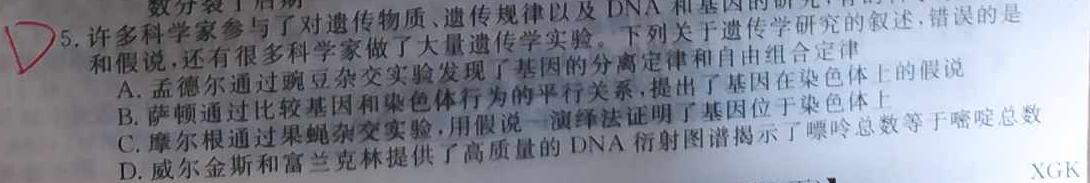 数分裂Ⅰ后期
D 5. 许多科学家参与了对遗传物质、遗传规律以及 DNA 和基因的研究,
和假说,还有很多科学家做了大量遗传学实验。下列关于遗传学研究的叙述,错误的是
A. 孟德尔通过豌豆杂交实验发现了基因的分离定律和自由组合定律
B. 萨顿通过比较基因和染色体行为的平行关系,提出了基因在染色体上的假说
C. 摩尔根通过果蝇杂交实验,用假说—演绎法证明了基因位于染色体上
D. 威尔金斯和富兰克林提供了高质量的 DNA 衍射图谱揭示了嘌呤总数等于嘧啶总数
XGK